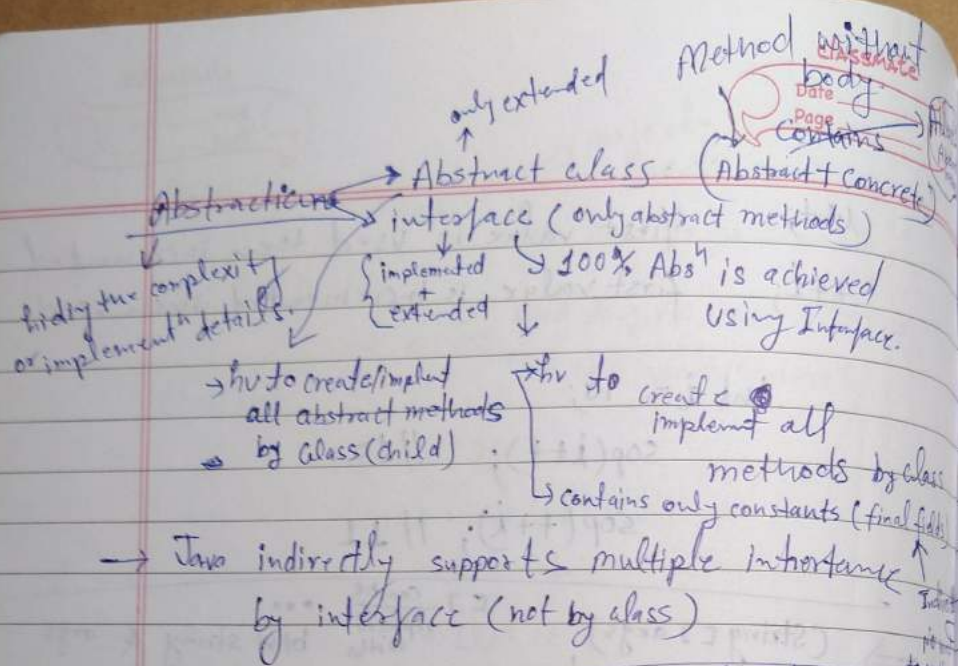 Method without
body
CLASSMATE
Date
Page
Contains
only extended
Abstract class (Abstract + Concrete)
Abstraction
interface (only abstract methods)
hiding the complexity
or implementⁿ details.
implemented
+
extended
100% Absⁿ is achieved
using Interface.
→ hv to create/implent
all abstract methods
by class (child)
→ hv to create
implemt all
methods by class
→ contains only constants (final fields)
sop(i++);
→ Java indirectly supports multiple inhertance
by interface (not by class)